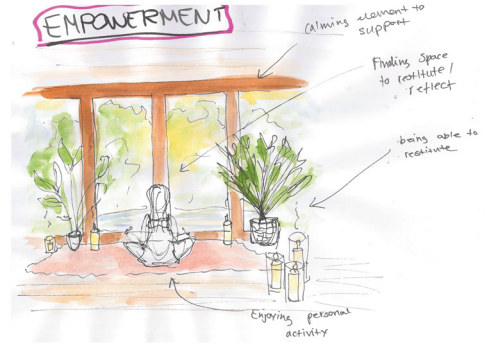 EMPOWERMENT
Calming element to
support
Finding space
to restitute/
reflect
being able to
restitute
Enjoying personal
activity